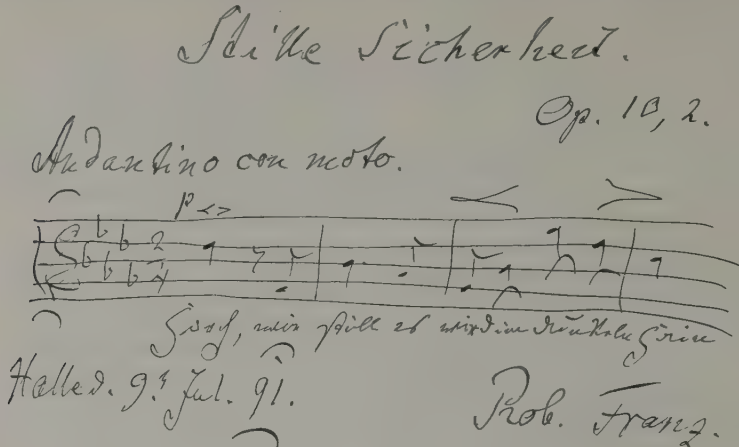 Stille Sicherheit.
Op. 10, 2.
Andantino con moto.
p
2
4
Horch, wie still es wird im dunkeln Hain
Halle d. 9t Jul. 91.
Rob. Franz.